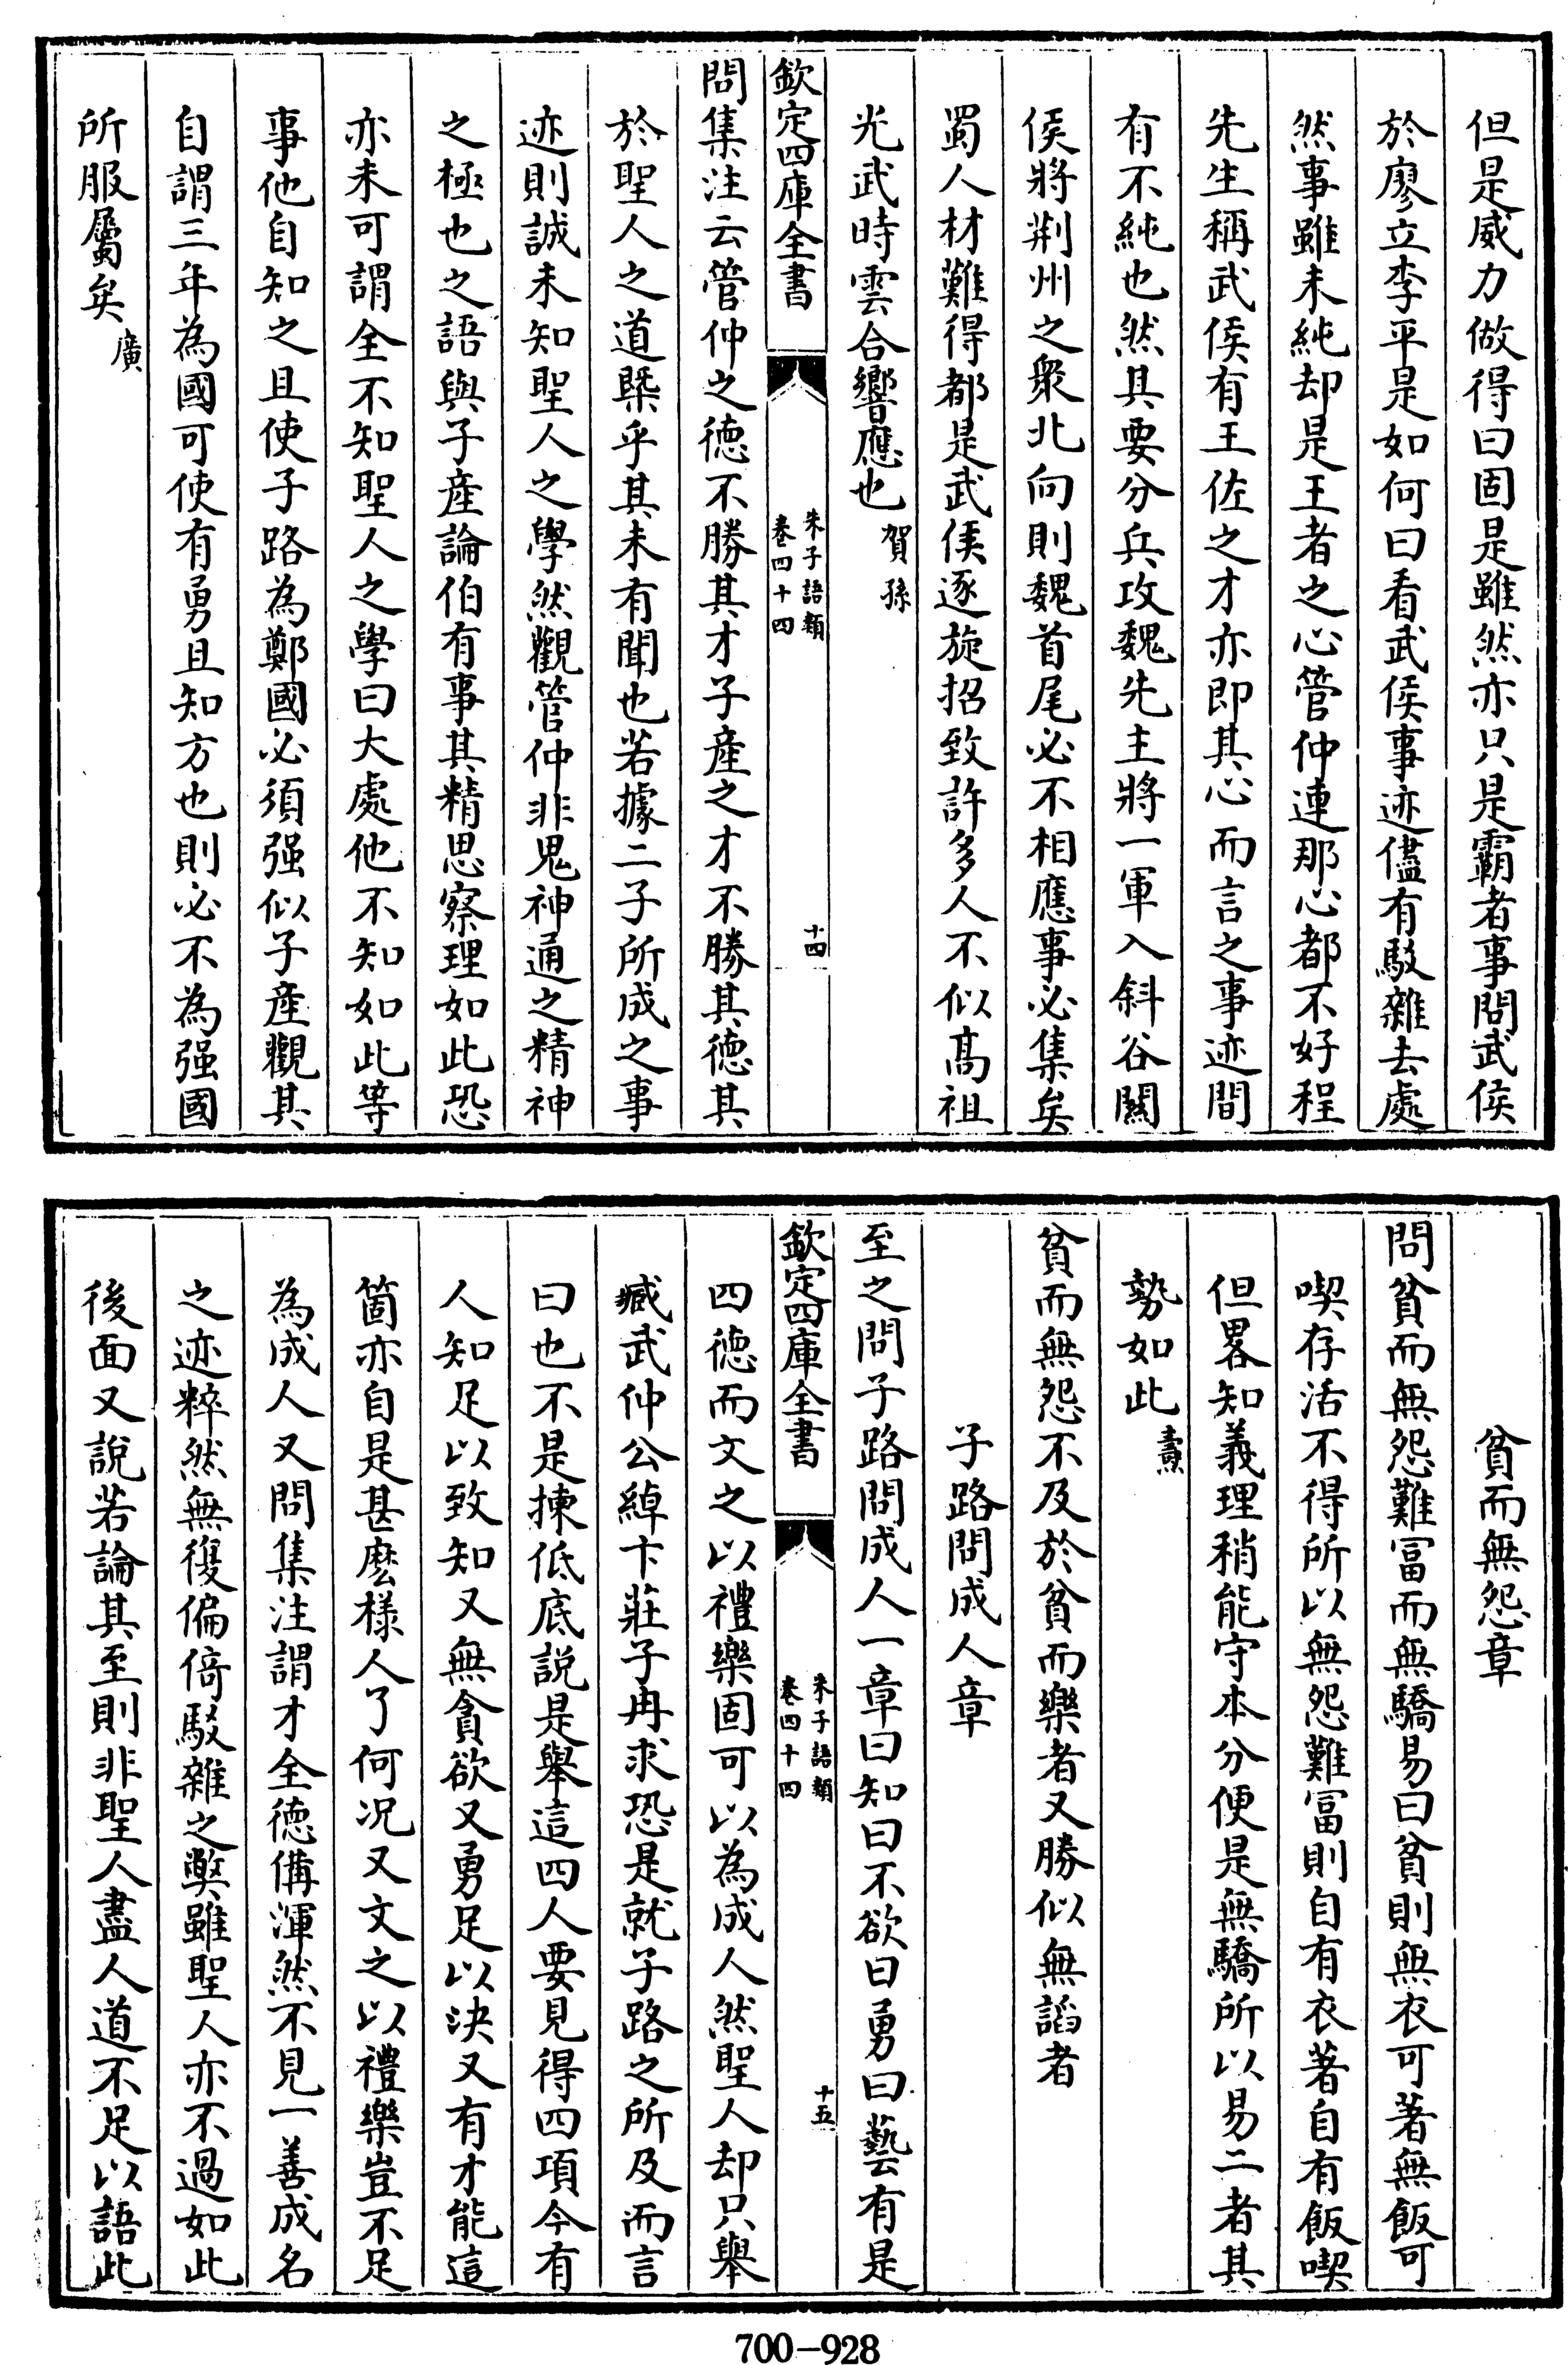 但是威力做得曰固是雖然亦只是霸者事問武侯
於廖立李平是如何曰看武侯事迹儘有駁雜去處
然事雖未純却是王者之心管仲連那心都不好程
先生稱武侯有王佐之才亦即其心而言之事迹間
有不純也然其要分兵攻魏先主將一軍入斜谷關
侯將荆州之衆北向則魏首尾必不相應事必集矣
蜀人材難得都是武侯逐旋招致許多人不似髙祖
光武時雲合響應也賀孫
欽定四庫全書
朱子語類
卷四十四
十四
問集注云管仲之德不勝其才子産之才不勝其德其
於聖人之道槩乎其未有聞也若據二子所成之事
迹則誠未知聖人之學然觀管仲非鬼神通之精神
之極也之語與子産論伯有事其精思察理如此恐
亦未可謂全不知聖人之學曰大處他不知如此等
事他自知之且使子路為鄭國必須强似子産觀其
自謂三年為國可使有勇且知方也則必不為强國
所服屬矣廣
貧而無怨章
問貧而無怨難冨而無驕易曰貧則無衣可著無飯可
喫存活不得所以無怨難冨則自有衣著自有飯喫
但畧知義理稍能守本分便是無驕所以易二者其
勢如此燾
貧而無怨不及於貧而樂者又勝似無謟者
子路問成人章
至之問子路問成人一章曰知曰不欲曰勇曰藝有是
欽定四庫全書
朱子語類
卷四十四
十五
四德而文之以禮樂固可以為成人然聖人却只舉
臧武仲公綽卞莊子冉求恐是就子路之所及而言
曰也不是揀低底説是舉這四人要見得四項今有
人知足以致知又無貪欲又勇足以決又有才能這
箇亦自是甚麽樣人了何况又文之以禮樂豈不足
為成人又問集注謂才全德備渾然不見一善成名
之迹粹然無復偏倚駁雜之獘雖聖人亦不過如此
後面又說若論其至則非聖人盡人道不足以語此
700-928